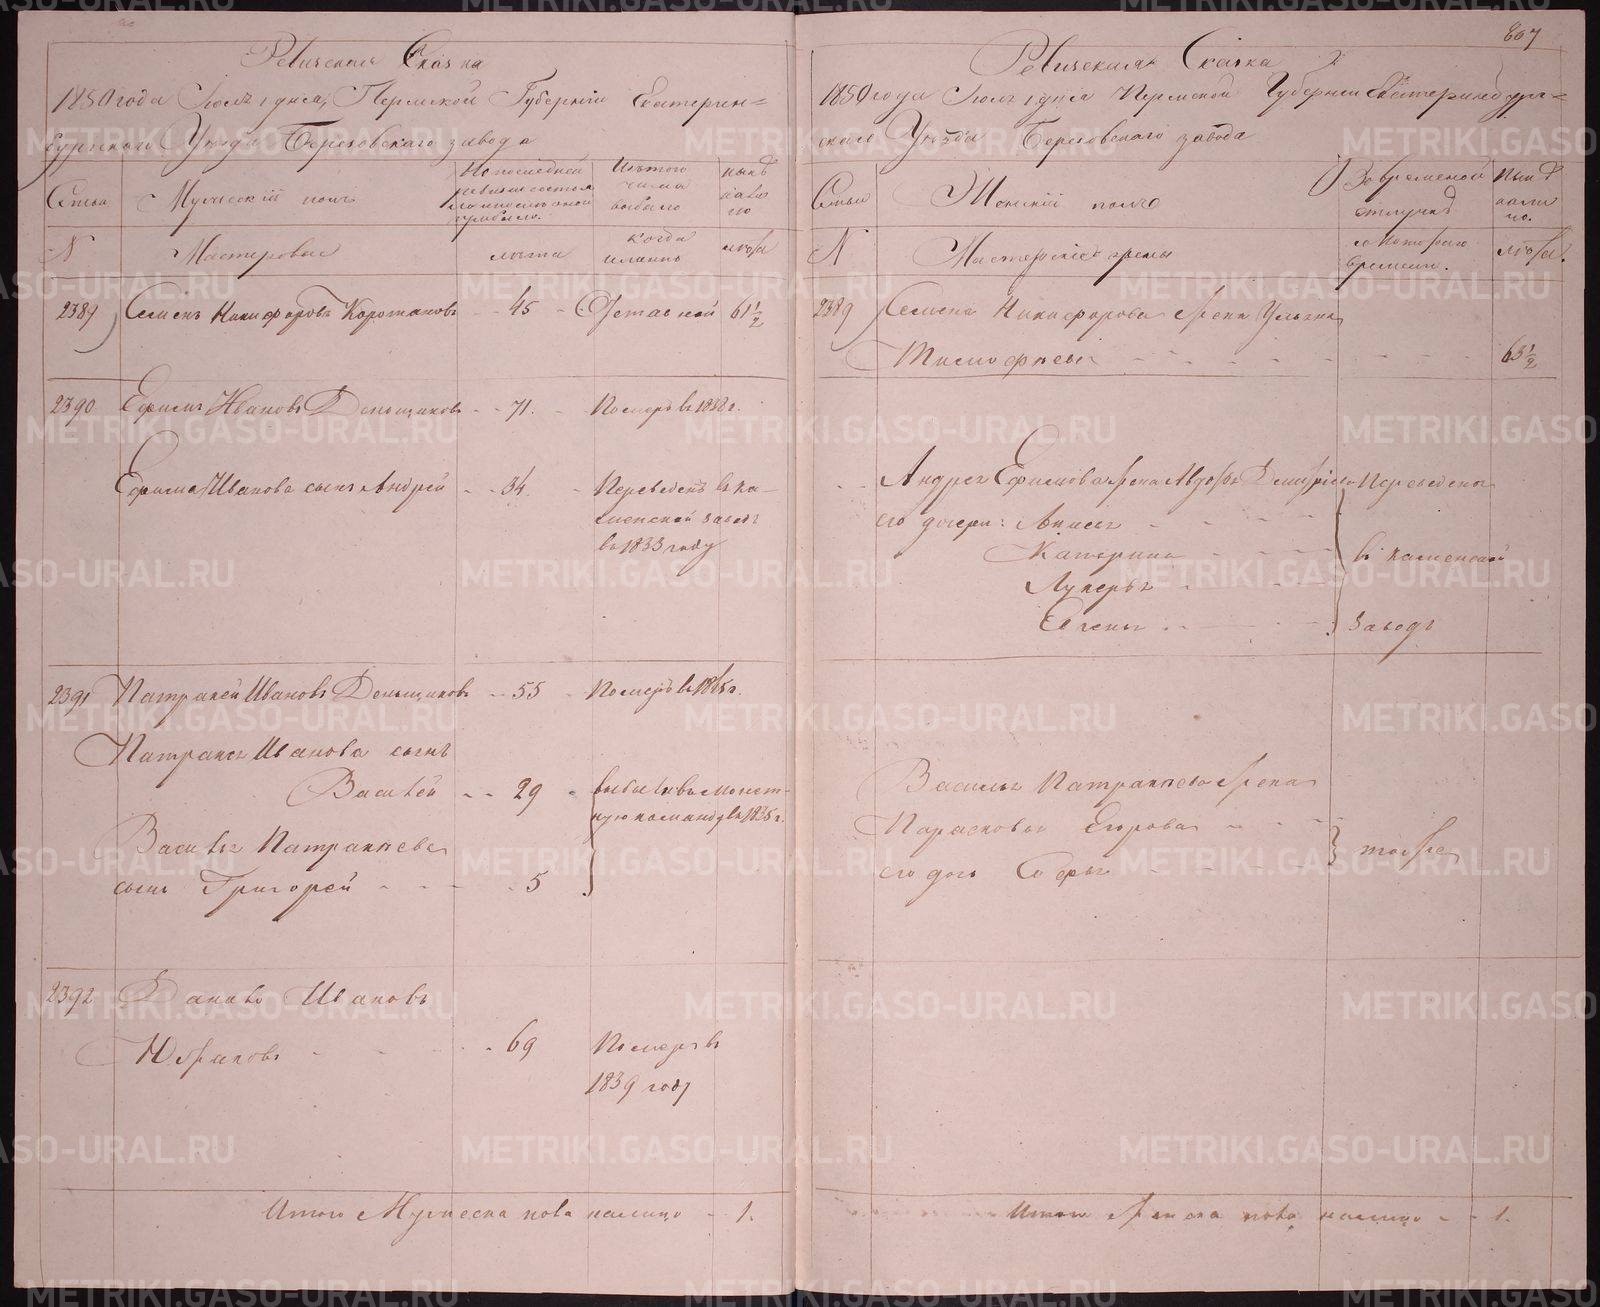 Ревизская Сказка
1850 года Іюля 1 дня, Пермской Губерніи Екатерин=
бургскаго Уѣзда Березовскаго завода
Семьи
Мужескій полъ
По последней ревизіи состояло
Изъ того числа выбыло
Нынѣ на лицо
N
Мастеровые
лѣта
когда именно
лѣта
2389 Семенъ Никифоровъ Коротановъ - 45 - Отставной 61½
2390 Ефимъ Ивановъ Деньщиковъ - - 71. - Померъ въ 1838 г.
Ефима Иванова сынъ Андрей - - 34. - Переведенъ въ Ка-
менской заводъ
въ 1833 году
2391 Патракей Ивановъ Деньщиковъ - - 55 - Померъ въ
Патракея Иванова сынъ
Василей - - 29 - выбылъ въ Монет-
ную команду въ 1835 г.
Василья Патракѣева
сынъ Григорей - - - - 5
2392 Данило Ивановъ
- - - 69 Померъ въ
1839 году
Итого Мужеска пола налицо - 1.
607
Ревизская Сказка
1850 года Іюля 1 дня Пермской Губерніи Екатеринбург=
скаго Уѣзда Березовскаго завода
Семьи
Женскій полъ
Во временной отлучкѣ
Нынѣ на лицо.
N
Мастерскіе жены
съ котораго времени.
лѣта.
2389 Семена Никифорова жена Ульяна
Тимофѣева - - - - - - 63½
Андрея Ефимова жена Авдотья Дмитріева Переведены
его дочери: Анисья
Катерина - - - - въ Каменской
Лукерья
Евгенья - - - заводъ
Василья Патракѣева жена
Парасковья Егорова - - - тоже
его дочь Софья
Итого женска пола налицо - - 1.
METRIKI.GASO-URAL.RU